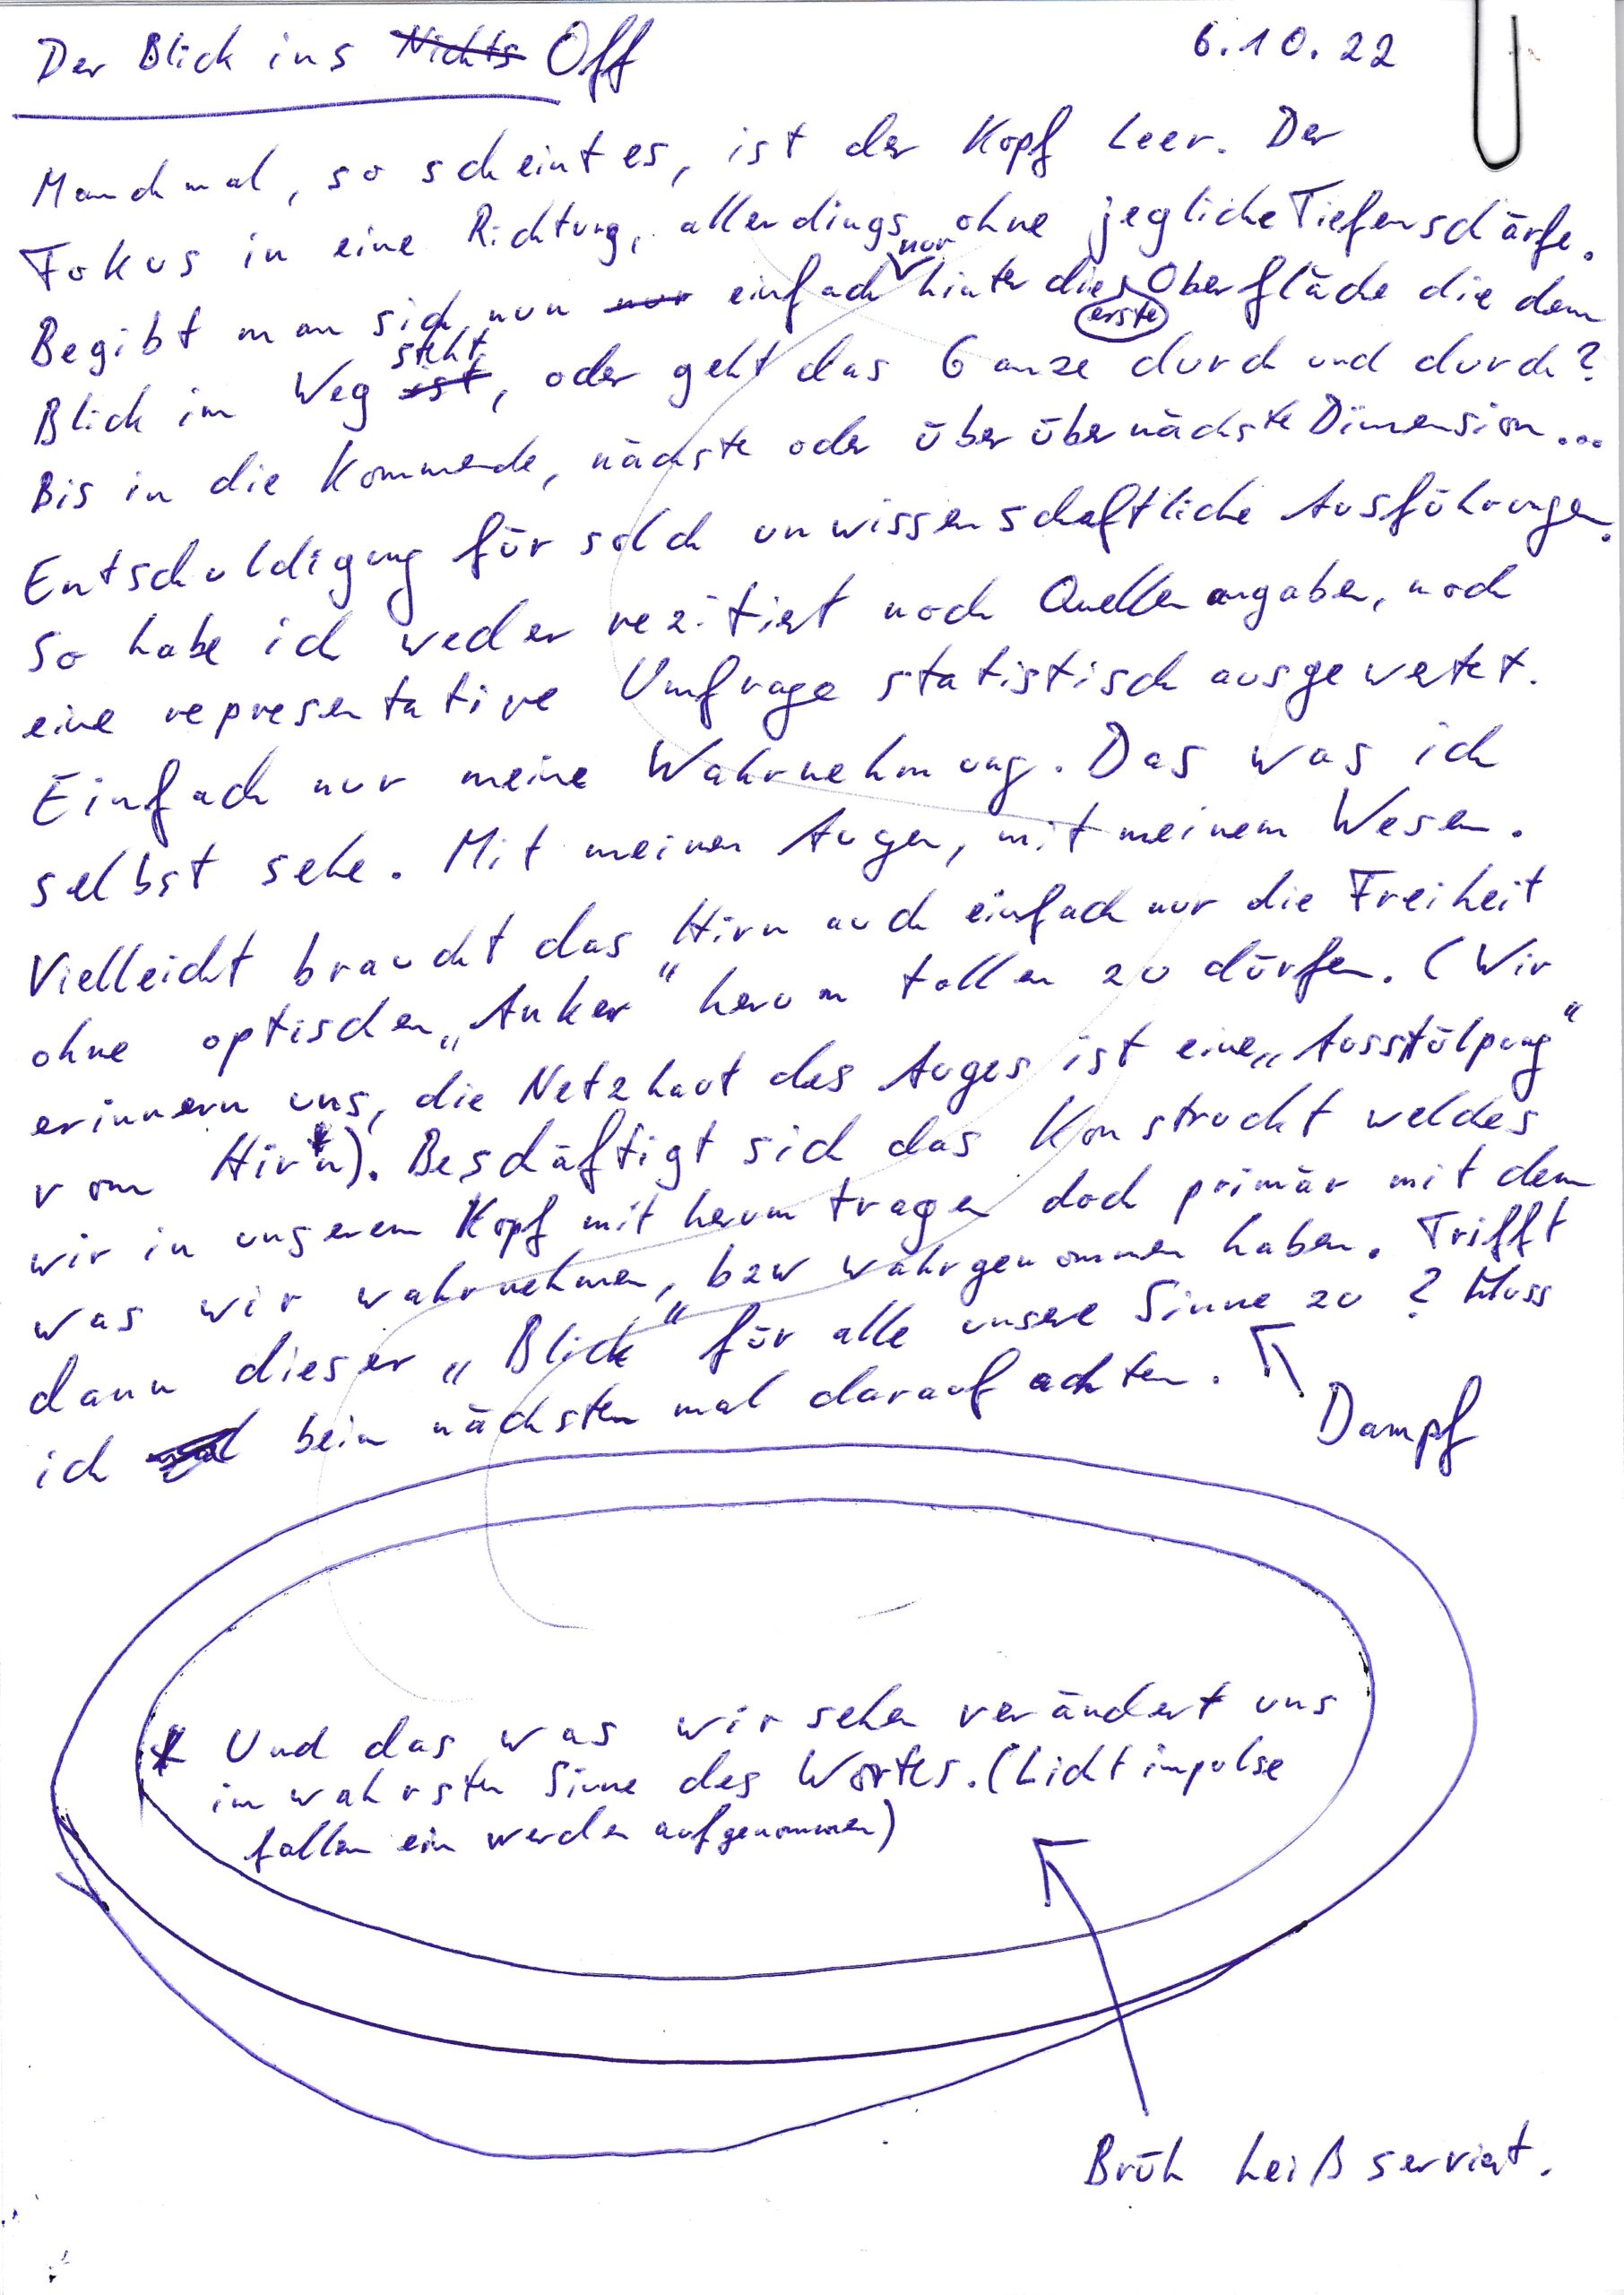 Der Blick ins Nichts Off 6.10.22
Manchmal, so scheint es, ist der Kopf Leer. Der
Fokus in eine Richtung, allerdings ohne jegliche Tiefenschärfe.
Begibt man sich nun nur einfach nur hinter die erste Oberfläche die dem
Blick im Weg ist steht, oder geht das Ganze durch und durch?
Bis in die Kommende, nächste oder über übernächste Dimension...
Entschuldigung für solch unwissenschaftliche Ausführungen.
So habe ich weder rezitiert noch Quellenangaben, noch
eine representative Umfrage statistisch ausgewertet.
Einfach nur meine Wahrnehmung. Das was ich
selbst sehe. Mit meinen Augen, mit meinem Wesen.
Vielleicht braucht das Hirn auch einfach nur die Freiheit
ohne optischen „Anker“ herum tollen zu dürfen. (Wir
erinnern uns, die Netzhaut des Auges ist eine „Ausstülpung“
vom Hirn*). Beschäftigt sich das Konstruckt welches
wir in unserem Kopf mit herum tragen doch primär mit dem
was wir wahrnehmen, bzw wahrgenommen haben. Trifft
dann dieser „Blick“ für alle unsere Sinne zu? Muss
ich mal beim nächsten mal darauf achten.
Dampf
* Und das was wir sehen verändert uns
im wahrsten Sinne des Wortes. (Lichtimpulse
fallen ein werden aufgenommen)
Brüh heiß serviert.